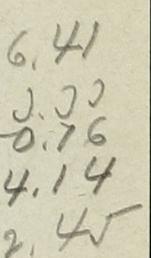 6.41
0.00
-0.76
4.14
2.45